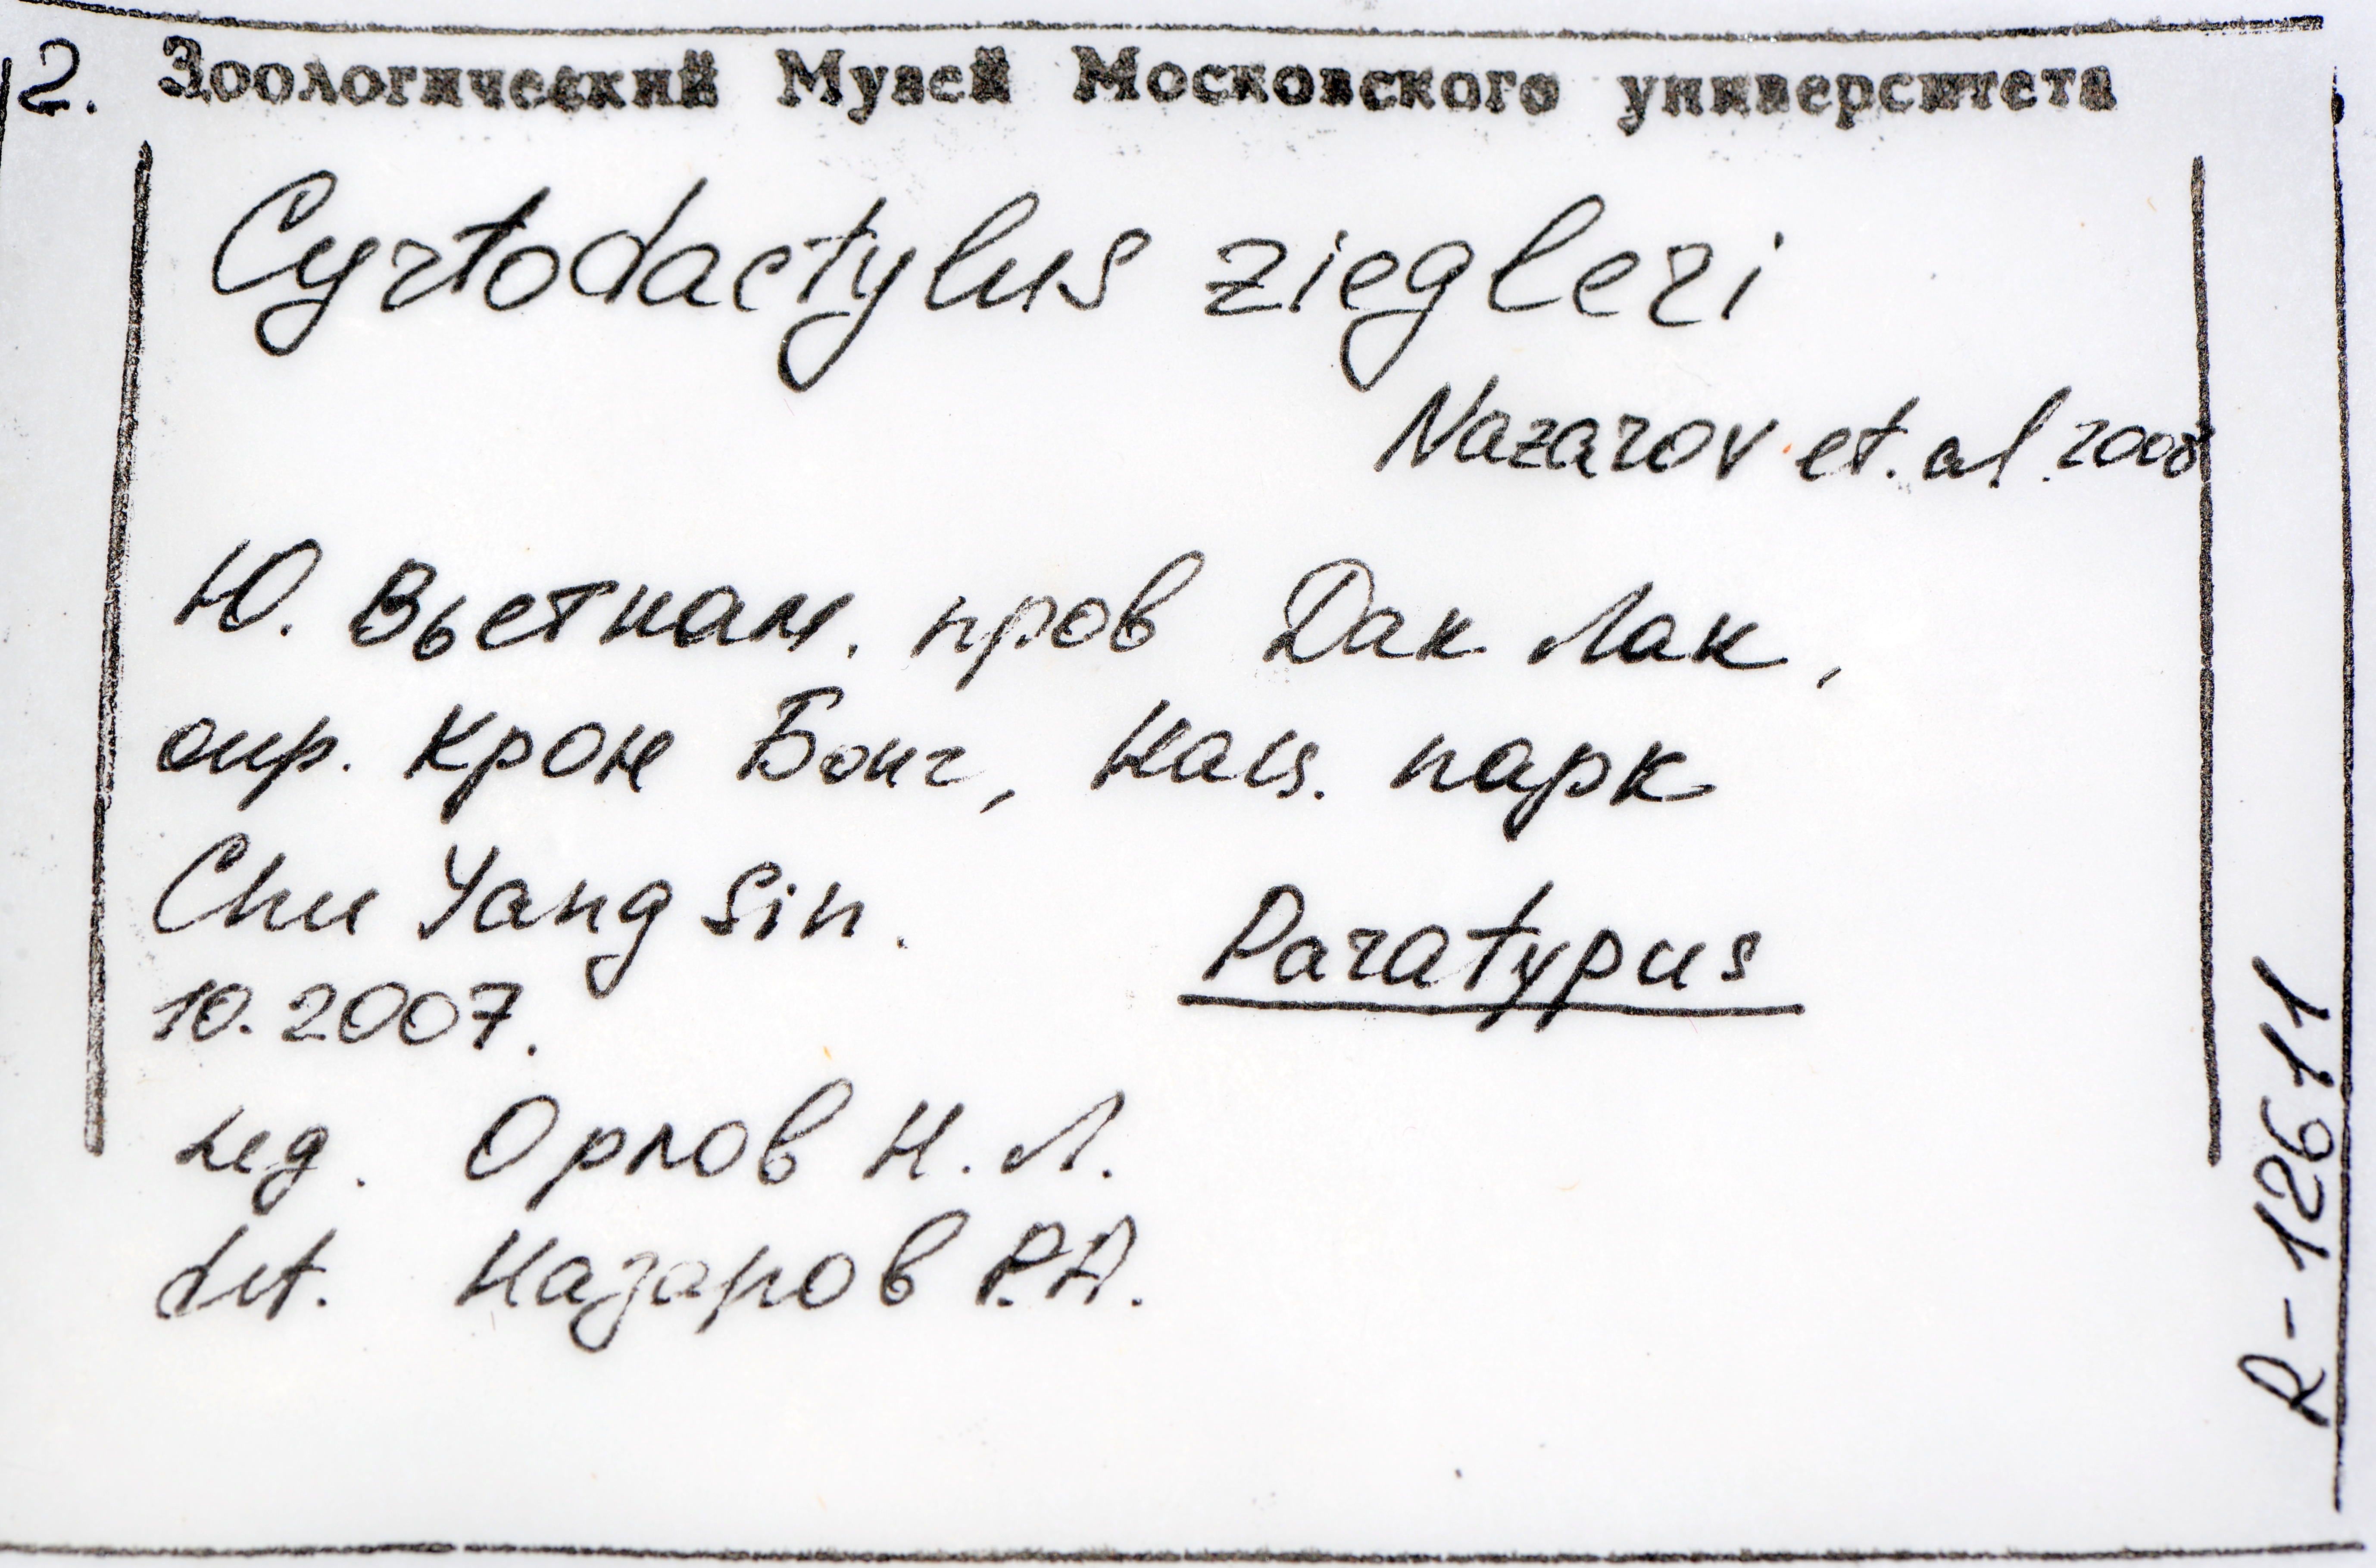 2. Зоологический Музей Московского университета
Cyrtodactylus ziegleri
Nazarov et. al. 2008
Ю. Вьетнам. пров Дак Лак,
окр. Крон Бонг, Нац. парк
Chu Yang Sin.
Paratypus
10.2007.
Leg. Орлов Н. Л.
det. Назаров Р.А.
R-12611